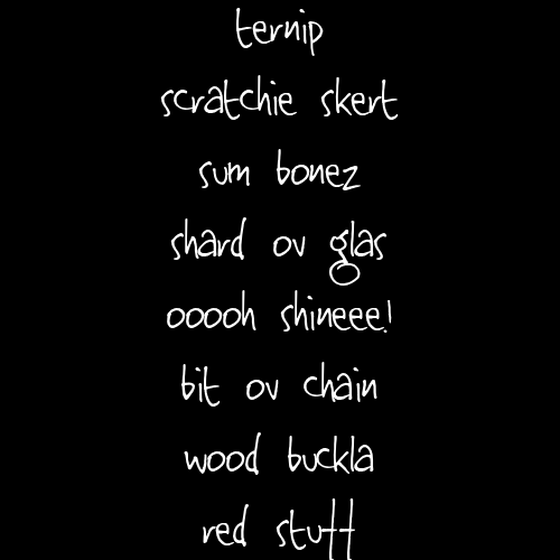 ternip
scratchie skert
sum bonez
shard ov glas
ooooh shineee!
bit ov chain
wood buckla
red stuff